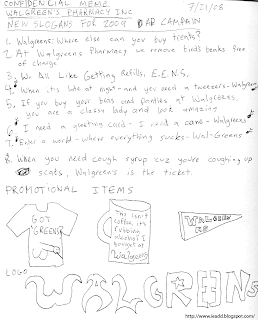 CONFIDENCIAL MEMO
WALGREEN'S PHARMACY INC
7/21/08
NEW SLOGANS FOR 2009 AD CAMPAIN
1. Walgreens: Where else can you buy treats?
2. At Walgreens Pharmacy we remove birds beaks free
of charge
3. We All Like Getting Refills, E.E.N.S.
4. When its late at night - and you need a tweezers - Walgreens
5. If you buy your bras and panties at Walgreens,
you are a classy lady and look amazing
6. I need a greeting card - I need a cane - Walgreens
7. Enter a world - where everything sucks - Wal-Greens
8. When you need cough syrup cuz you're coughing up
scabs, Walgreen's is the ticket.
PROMOTIONAL ITEMS
GOT
GREENS?
This isn't
coffee, its
rubbing
alcohol I
bought at
Walgreens
WALGREENS
LOGO
WALGREENS
http://www.leadd.blogspot.com/